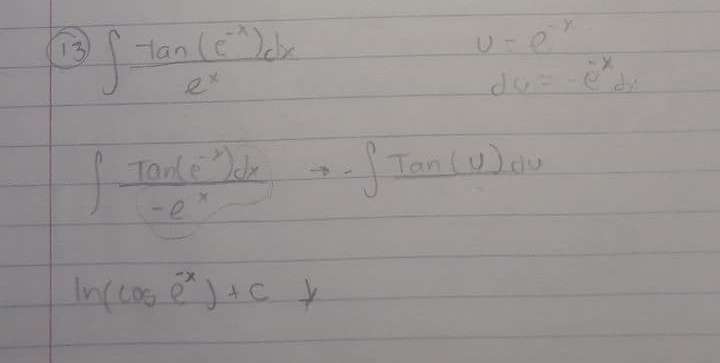 (13) ∫ tan(e^-x)dx / e^x    u = e^-x
du = -e^-x dx
∫ Tan(e^-x)dx / -e^x → -∫ Tan(u) du
ln(cos e^-x) + c